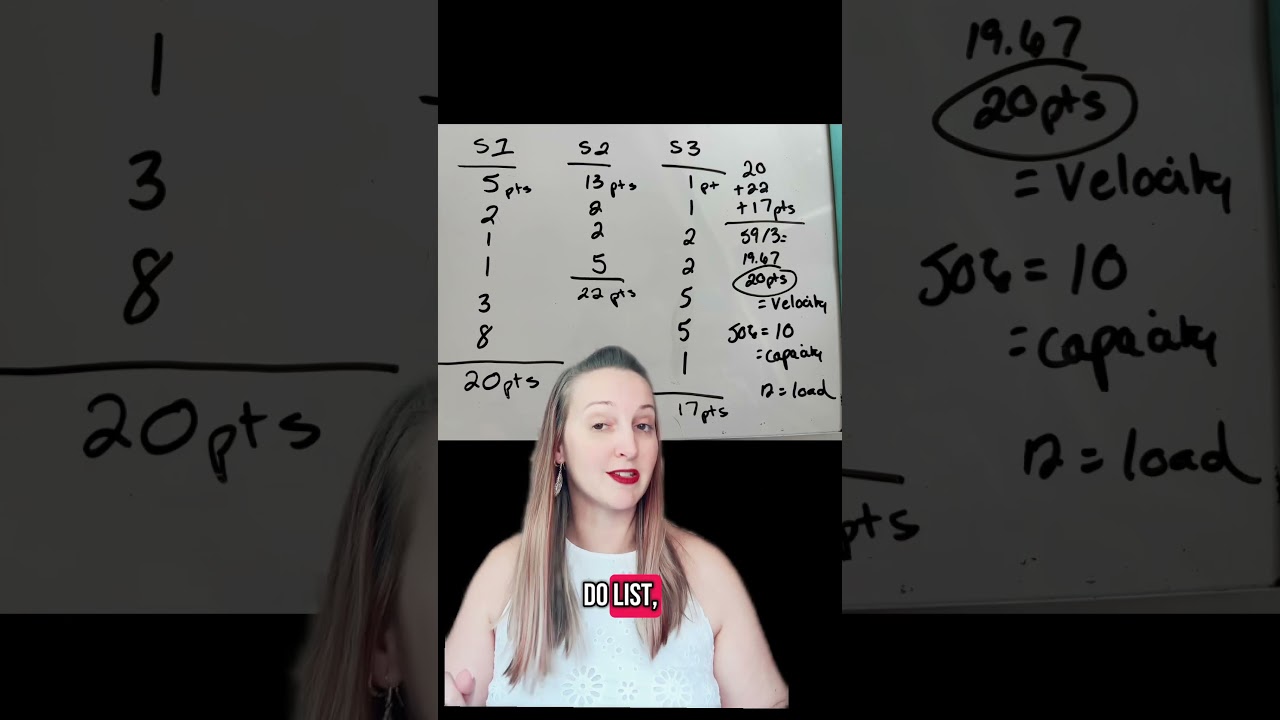 S1
5 pts
2
1
1
3
8
20pts
S2
13 pts
2
2
5
22 pts
S3
1 pt
1
2
2
5
5
1
17 pts
20
+22
+17pts
59/3=
19.67
20pts
= Velocity
= 10
= capacity
12 = load
DO LIST,
1
3
8
20pts
19.67
20pts
= Velocity
= 10
= capacity
12 = load
pts